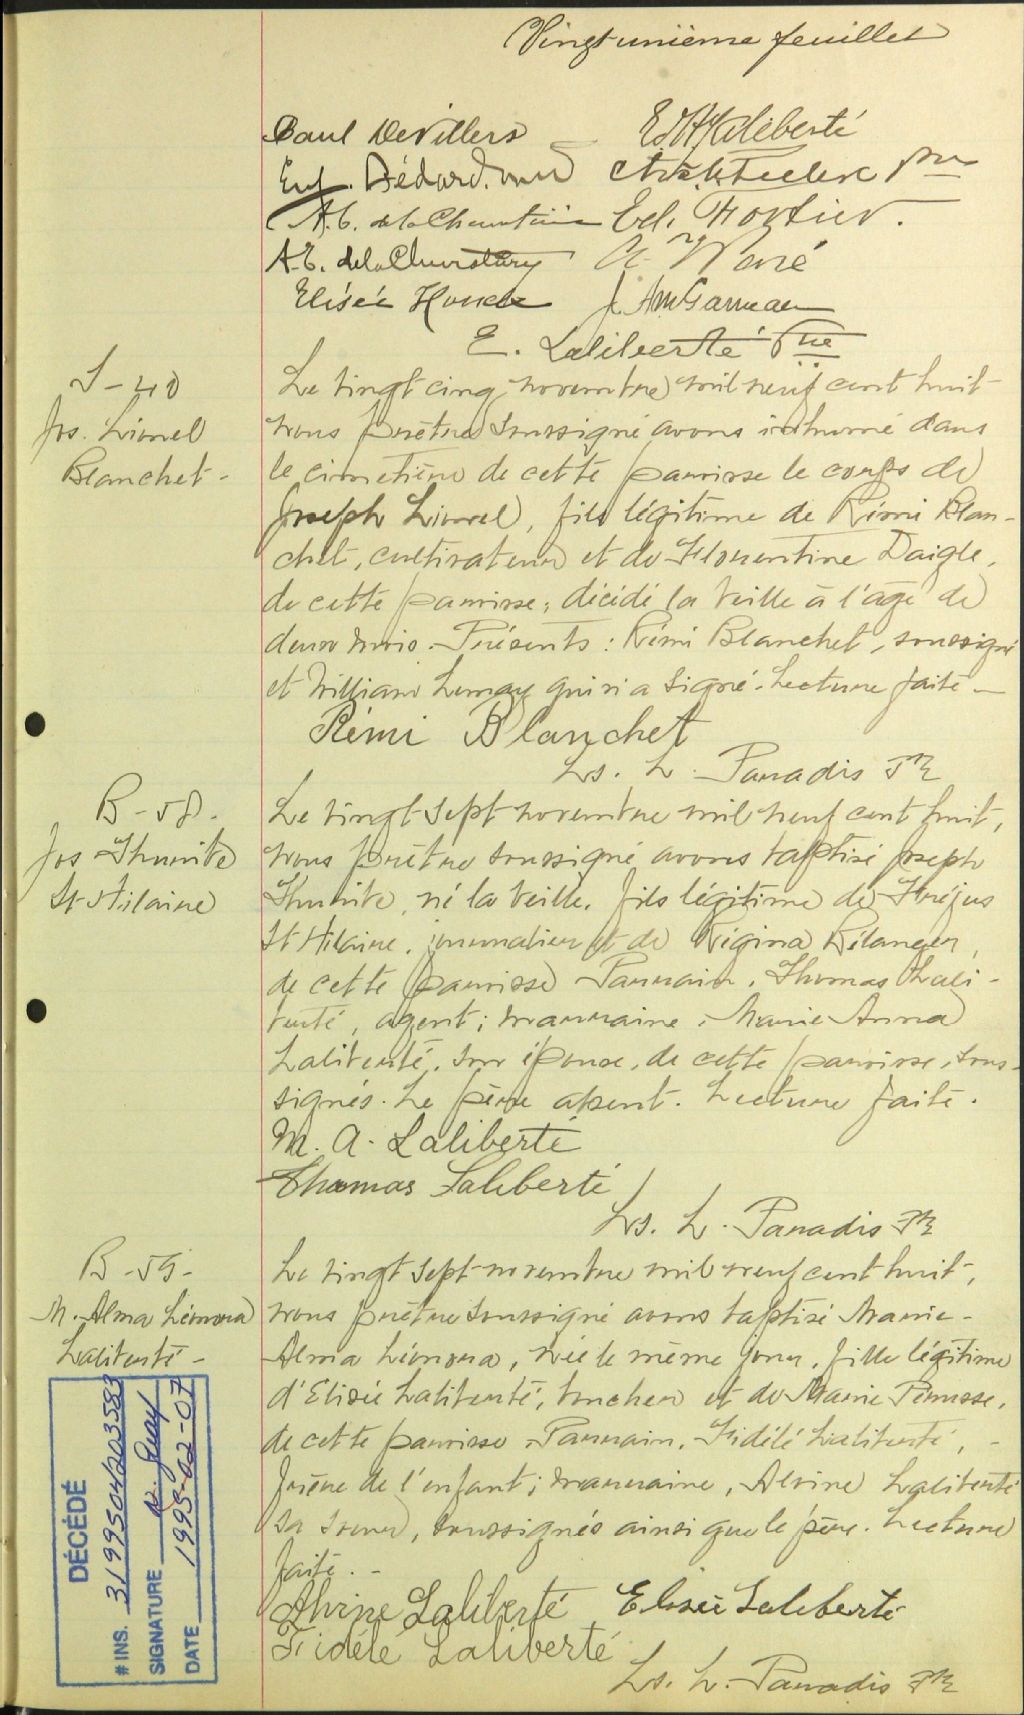 Vingt unième feuillet
Paul DeVillers Ed. H. Laliberté
Eug. Bédard. Leclerc ptre
Ed. Fortier.
A.E. Paré
Elisée Houde J. Garneau
E. Laliberté Ptre
S-40
Jos. Lionel
Blanchet -
Le vingt cinq novembre mil neuf cent huit
nous prêtre soussigné avons inhumé dans
le cimetière de cette paroisse le corps de
Joseph Lionel, fils légitime de Rémi Blan-
chet, cultivateur et de Florentine Daigle,
de cette paroisse, décédé la veille à l'âge de
deux mois. Présents : Rémi Blanchet, soussigné
et William Lemay qui n'a signé. Lecture faite -
Rémi Blanchet
Ls. L. Paradis Ptr
B-58.
Jos Thunite
St Hilaire
Le vingt sept novembre mil neuf cent huit,
nous prêtre soussigné avons baptisé Joseph
né la veille, fils légitime de Fréjus
St Hilaire, journalier et de Régina Bélanger,
de cette paroisse Parrain, Thomas Lali-
berté, agent; marraine, Marie Anna
Laliberté, son épouse, de cette paroisse, sous-
signés. Le père absent. Lecture faite.
M. A. Laliberté
Thomas Laliberté
Ls. L. Paradis Ptr
B-59-
M. Alma Léonora
Laliberté -
Le vingt sept novembre mil neuf cent huit,
nous prêtre soussigné avons baptisé Marie-
Alma Léonora, née le même jour, fille légitime
d'Elisée Laliberté, boucher et de Marie Perusse,
de cette paroisse. Parrain, Fidélé Laliberté, -
frère de l'enfant; marraine, Alvine Laliberté
sa soeur, soussignés ainsi que le père. Lecture
faite. -
Alvine Laliberté Elisée Laliberté
Fidélé Laliberté
Ls. L. Paradis Ptr
DÉCÉDÉ
# INS. 3199504203583
SIGNATURE
DATE 1995-02-07